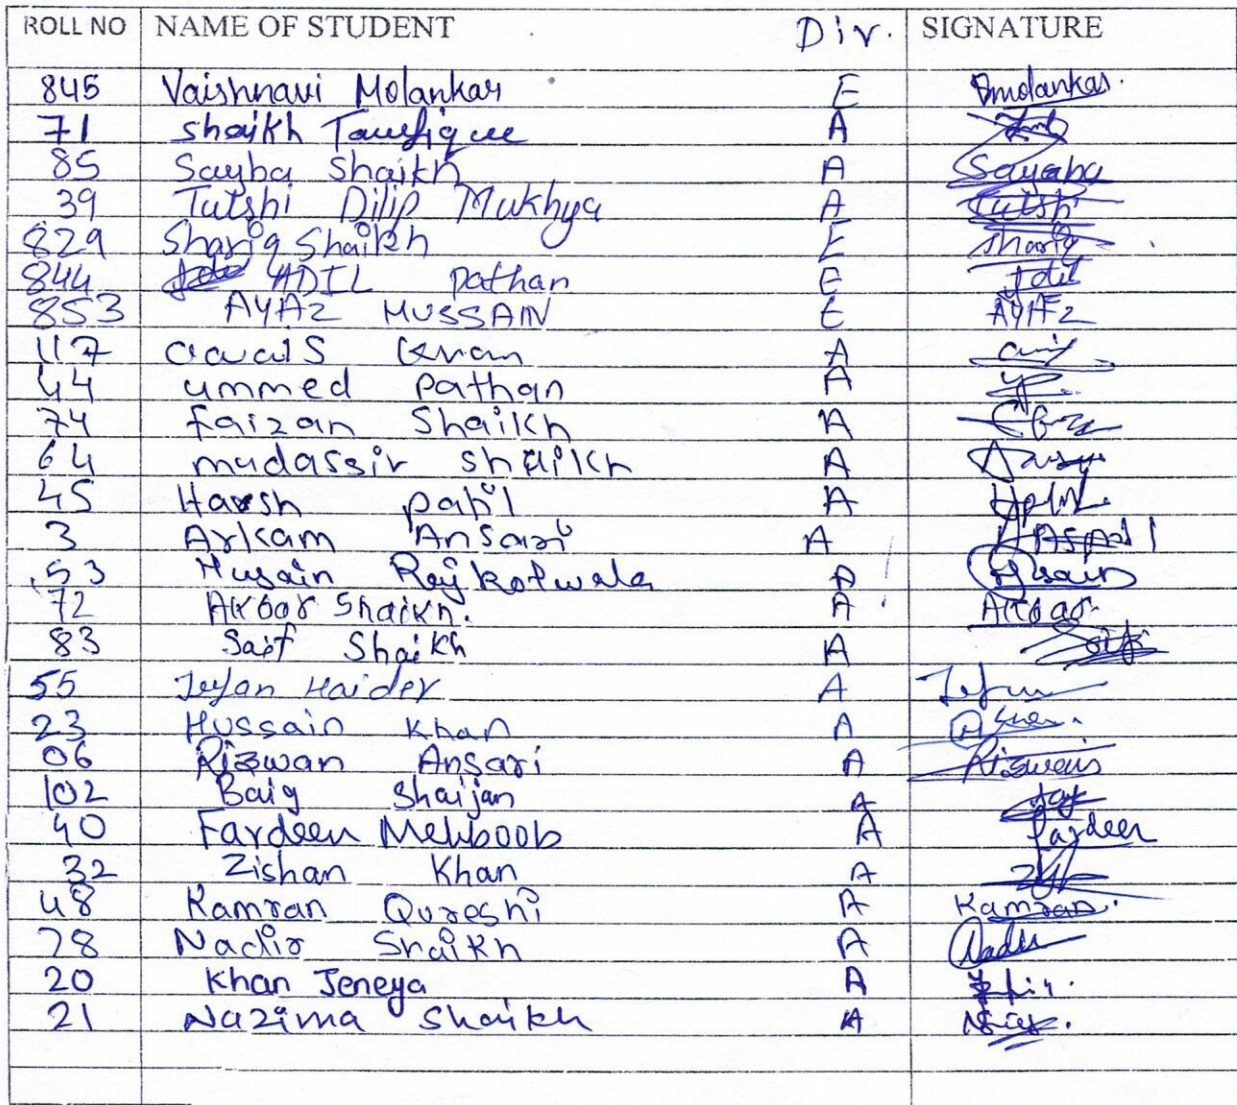 ROLL NO NAME OF STUDENT Div. SIGNATURE
845 Vaishnavi Molankar E Bmolankar.
71 Shaikh Taufique A
85 Sayba Shaikh A Sayaba
39 Tulshi Dilip Mukhya A Tulshi
829 Shariq Shaikh E Shariq
844 ADIL pathan E Adil
853 AYAZ HUSSAIN E AYAZ
117 Khan A
44 ummed pathan A
74 faizan Shaikh A
64 mudassir shaikh A
45 Harsh patil A
3 Arkam Ansari A
53 Husain Rajkotwala A Husain
72 Akbar Shaikh. A Akbar.
83 Saif Shaikh A Saif
55 Haider A
23 Hussain Khan A
06 Rizwan Ansari A Rizwan
102 Baig Shaijan A
40 Fardeen Mehboob A fardeen
32 Zishan Khan A
48 Kamran Qureshi A Kamran.
78 Nadir Shaikh A Nadir
20 Khan Jeneya A
21 Nazima Shaikh A